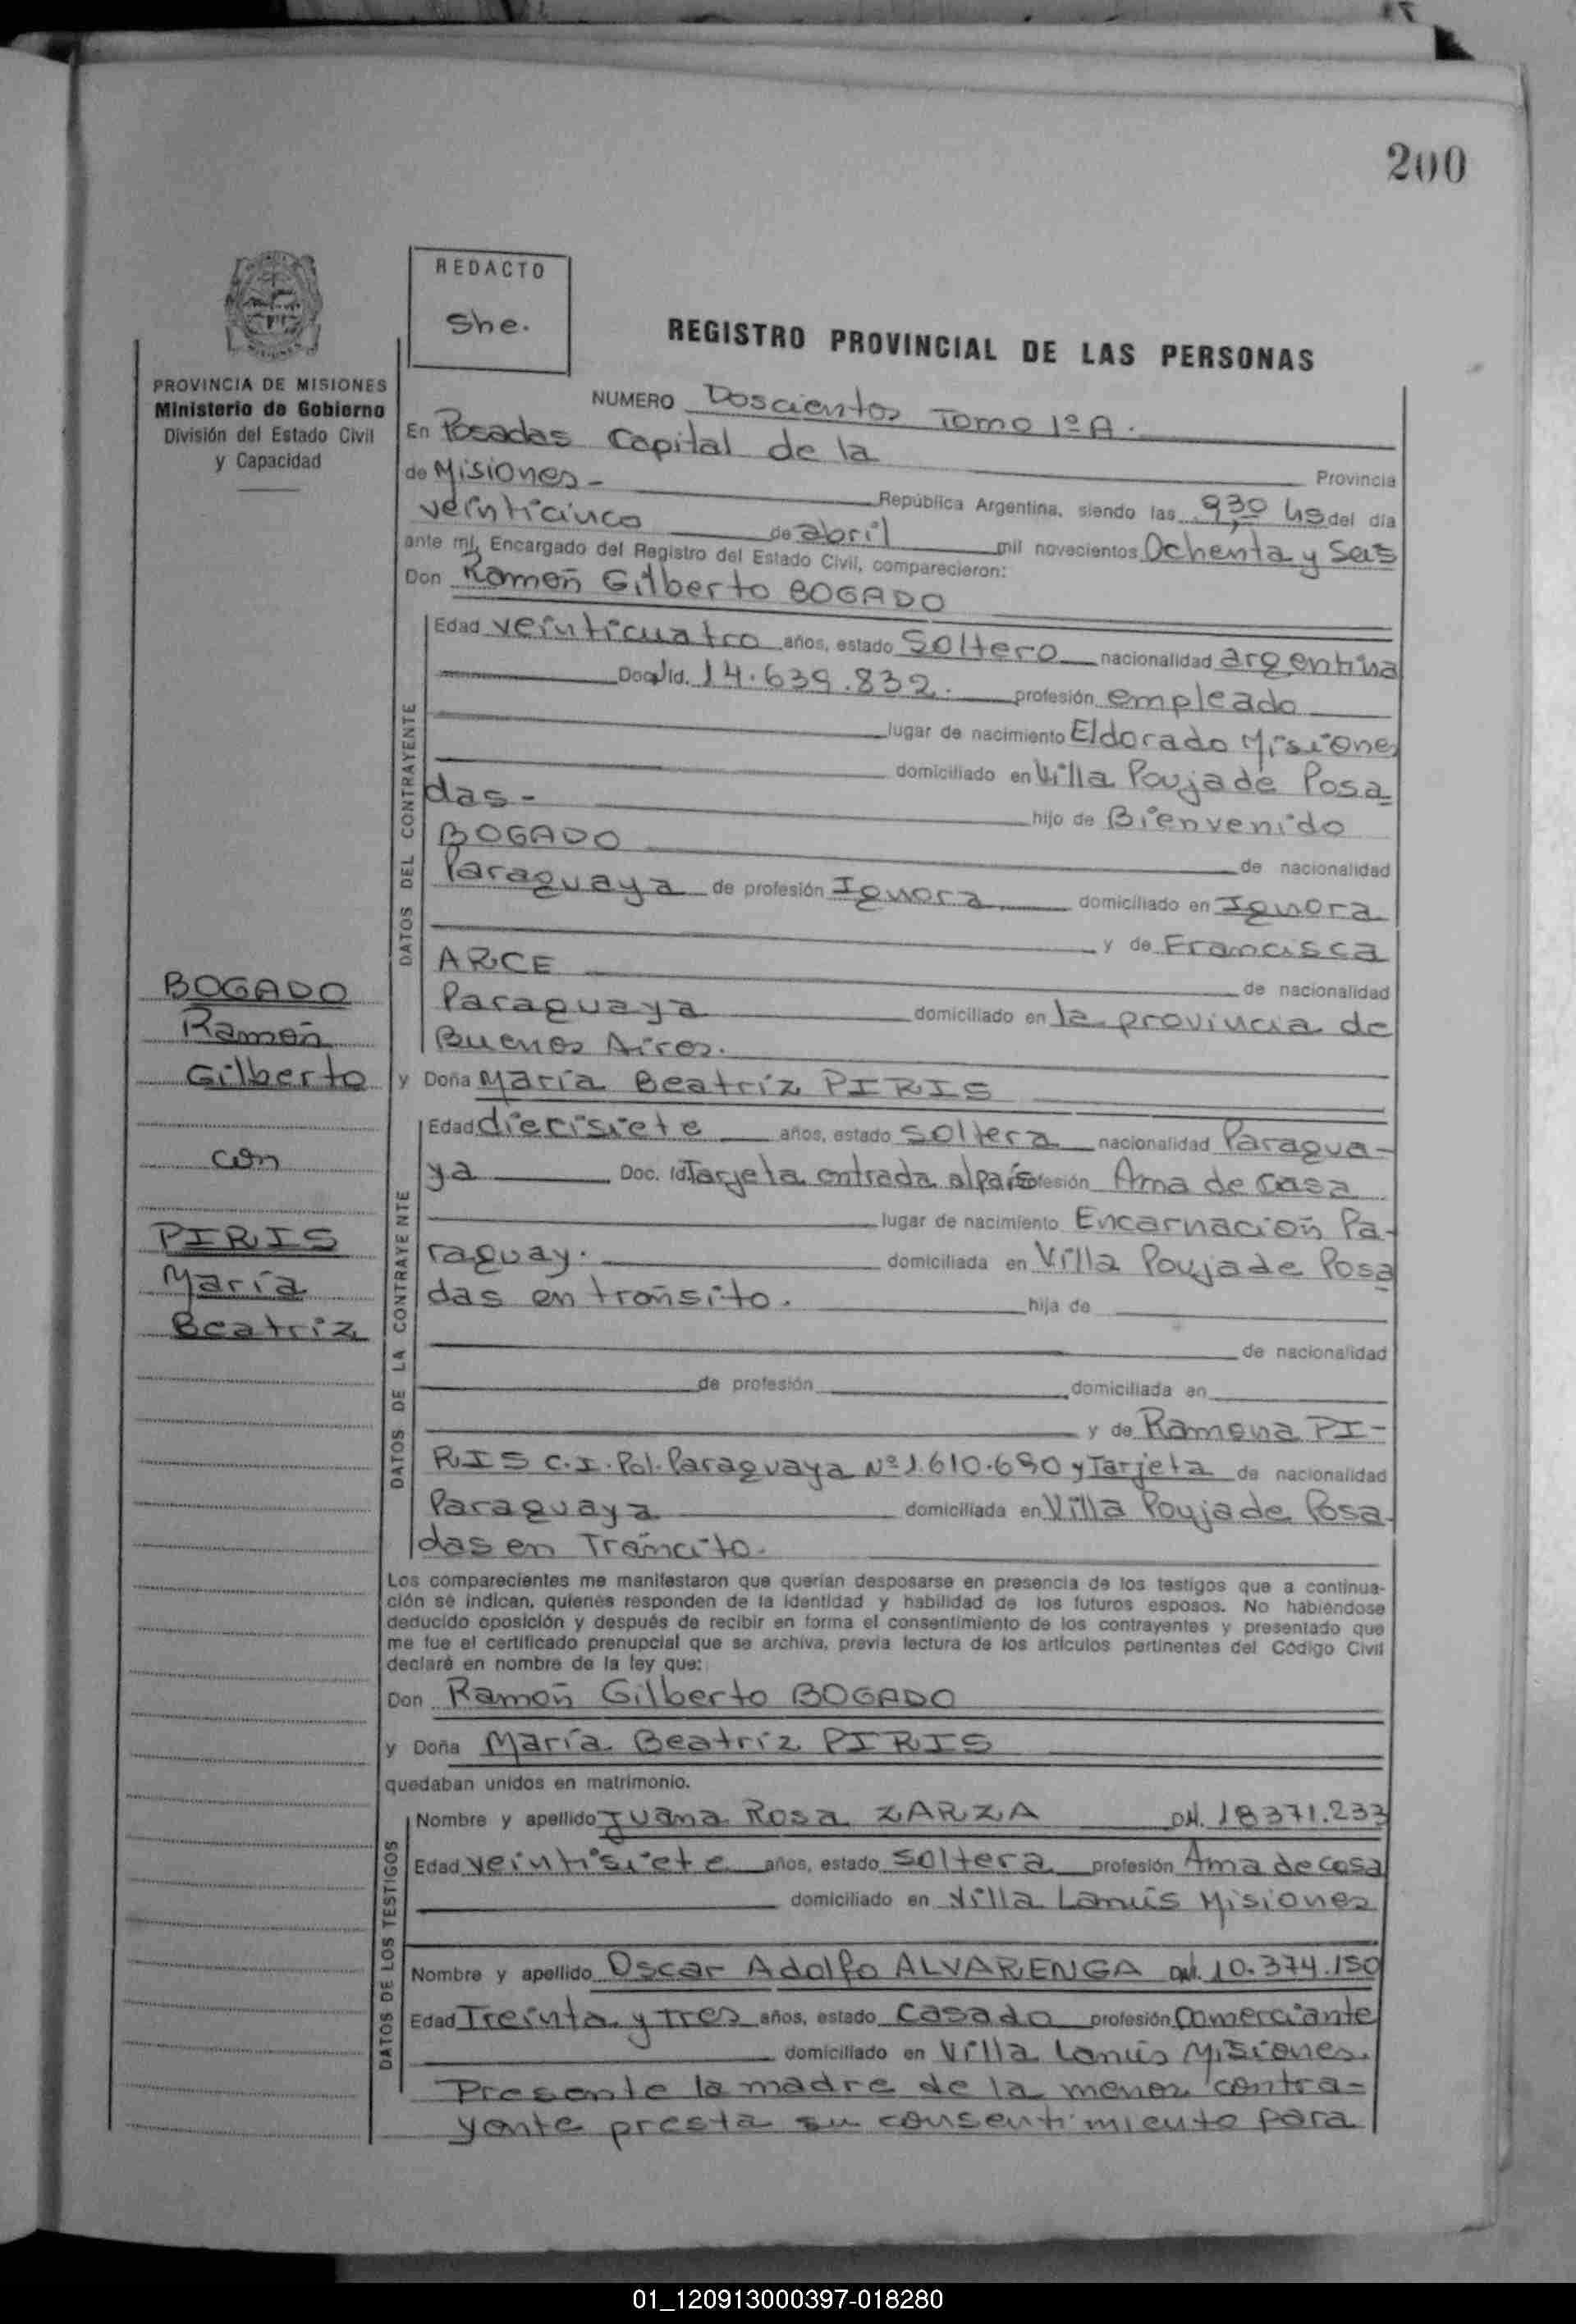 200
REDACTO
She.
REGISTRO PROVINCIAL DE LAS PERSONAS
PROVINCIA DE MISIONES
Ministerio de Gobierno
División del Estado Civil
y Capacidad
NUMERO Doscientos Tomo 1º A.
En Posadas Capital de la Provincia
de Misiones - República Argentina, siendo las 9,30 hs del día
veinticinco de abril mil novecientos Ochenta y Seis
ante mí, Encargado del Registro del Estado Civil, comparecieron:
Don Ramón Gilberto BOGADO
DATOS DEL CONTRAYENTE
Edad veinticuatro años, estado Soltero nacionalidad argentina
Doc. Id. 14.639.832. profesión empleado
lugar de nacimiento Eldorado Misiones
domiciliado en Villa Poujade Posa
das - hijo de Bienvenido
BOGADO de nacionalidad
Paraguaya de profesión Ignora domiciliado en Ignora
y de Francisca
ARCE de nacionalidad
Paraguaya domiciliado en la provincia de
Buenos Aires.
y Doña María Beatriz PIRIS
BOGADO
Ramón
Gilberto
con
PIRIS
María
Beatriz
DATOS DE LA CONTRAYENTE
Edad diecisiete años, estado soltera nacionalidad Paragua-
ya Doc. Id. Tarjeta entrada al país profesión Ama de casa
lugar de nacimiento Encarnación Pa-
raguay. domiciliada en Villa Poujade Posa
das en tránsito. hija de
de nacionalidad
de profesión domiciliada en
y de Ramona PI-
RIS C.I. Pol. Paraguaya Nº 1.610.690 y Tarjeta de nacionalidad
Paraguaya domiciliada en Villa Poujade Posa-
das en Tráncito.
Los comparecientes me manifestaron que querían desposarse en presencia de los testigos que a continua-
ción se indican, quienes responden de la identidad y habilidad de los futuros esposos. No habiéndose
deducido oposición y después de recibir en forma el consentimiento de los contrayentes y presentado que
me fue el certificado prenupcial que se archiva, previa lectura de los artículos pertinentes del Código Civil
declaré en nombre de la ley que:
Don Ramón Gilberto BOGADO
y Doña María Beatriz PIRIS
quedaban unidos en matrimonio.
DATOS DE LOS TESTIGOS
Nombre y apellido Juana Rosa ZARZA DNI. 18371.233
Edad veintisiete años, estado soltera profesión Ama de casa
domiciliado en Villa Lanús Misiones
Nombre y apellido Oscar Adolfo ALVARENGA DNI. 10.374.150
Edad Treinta y tres años, estado casado profesión comerciante
domiciliado en Villa Lanús Misiones.
Presente la madre de la menor contra-
yente presta su consentimiento para
01_120913000397-018280